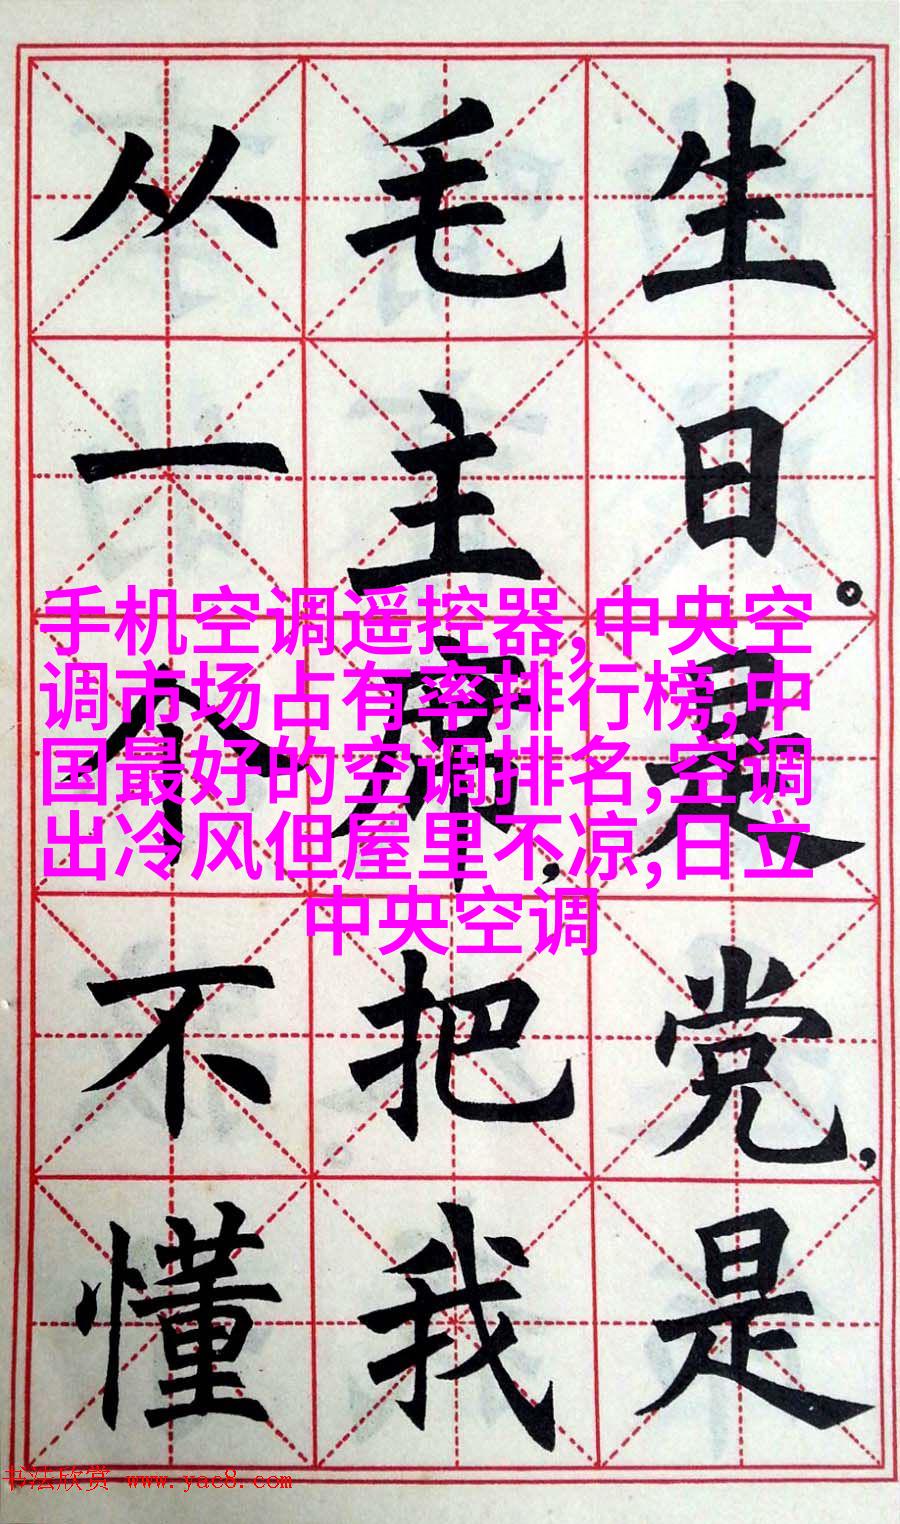 生日。是党,是
毛主席,把我
从一个不懂
手机空调遥控器,中央空
调市场占有率排行榜,中
国最好的空调排名,空调
出冷风但屋里不凉,日立
中央空调
书法欣赏 www.yac8.com